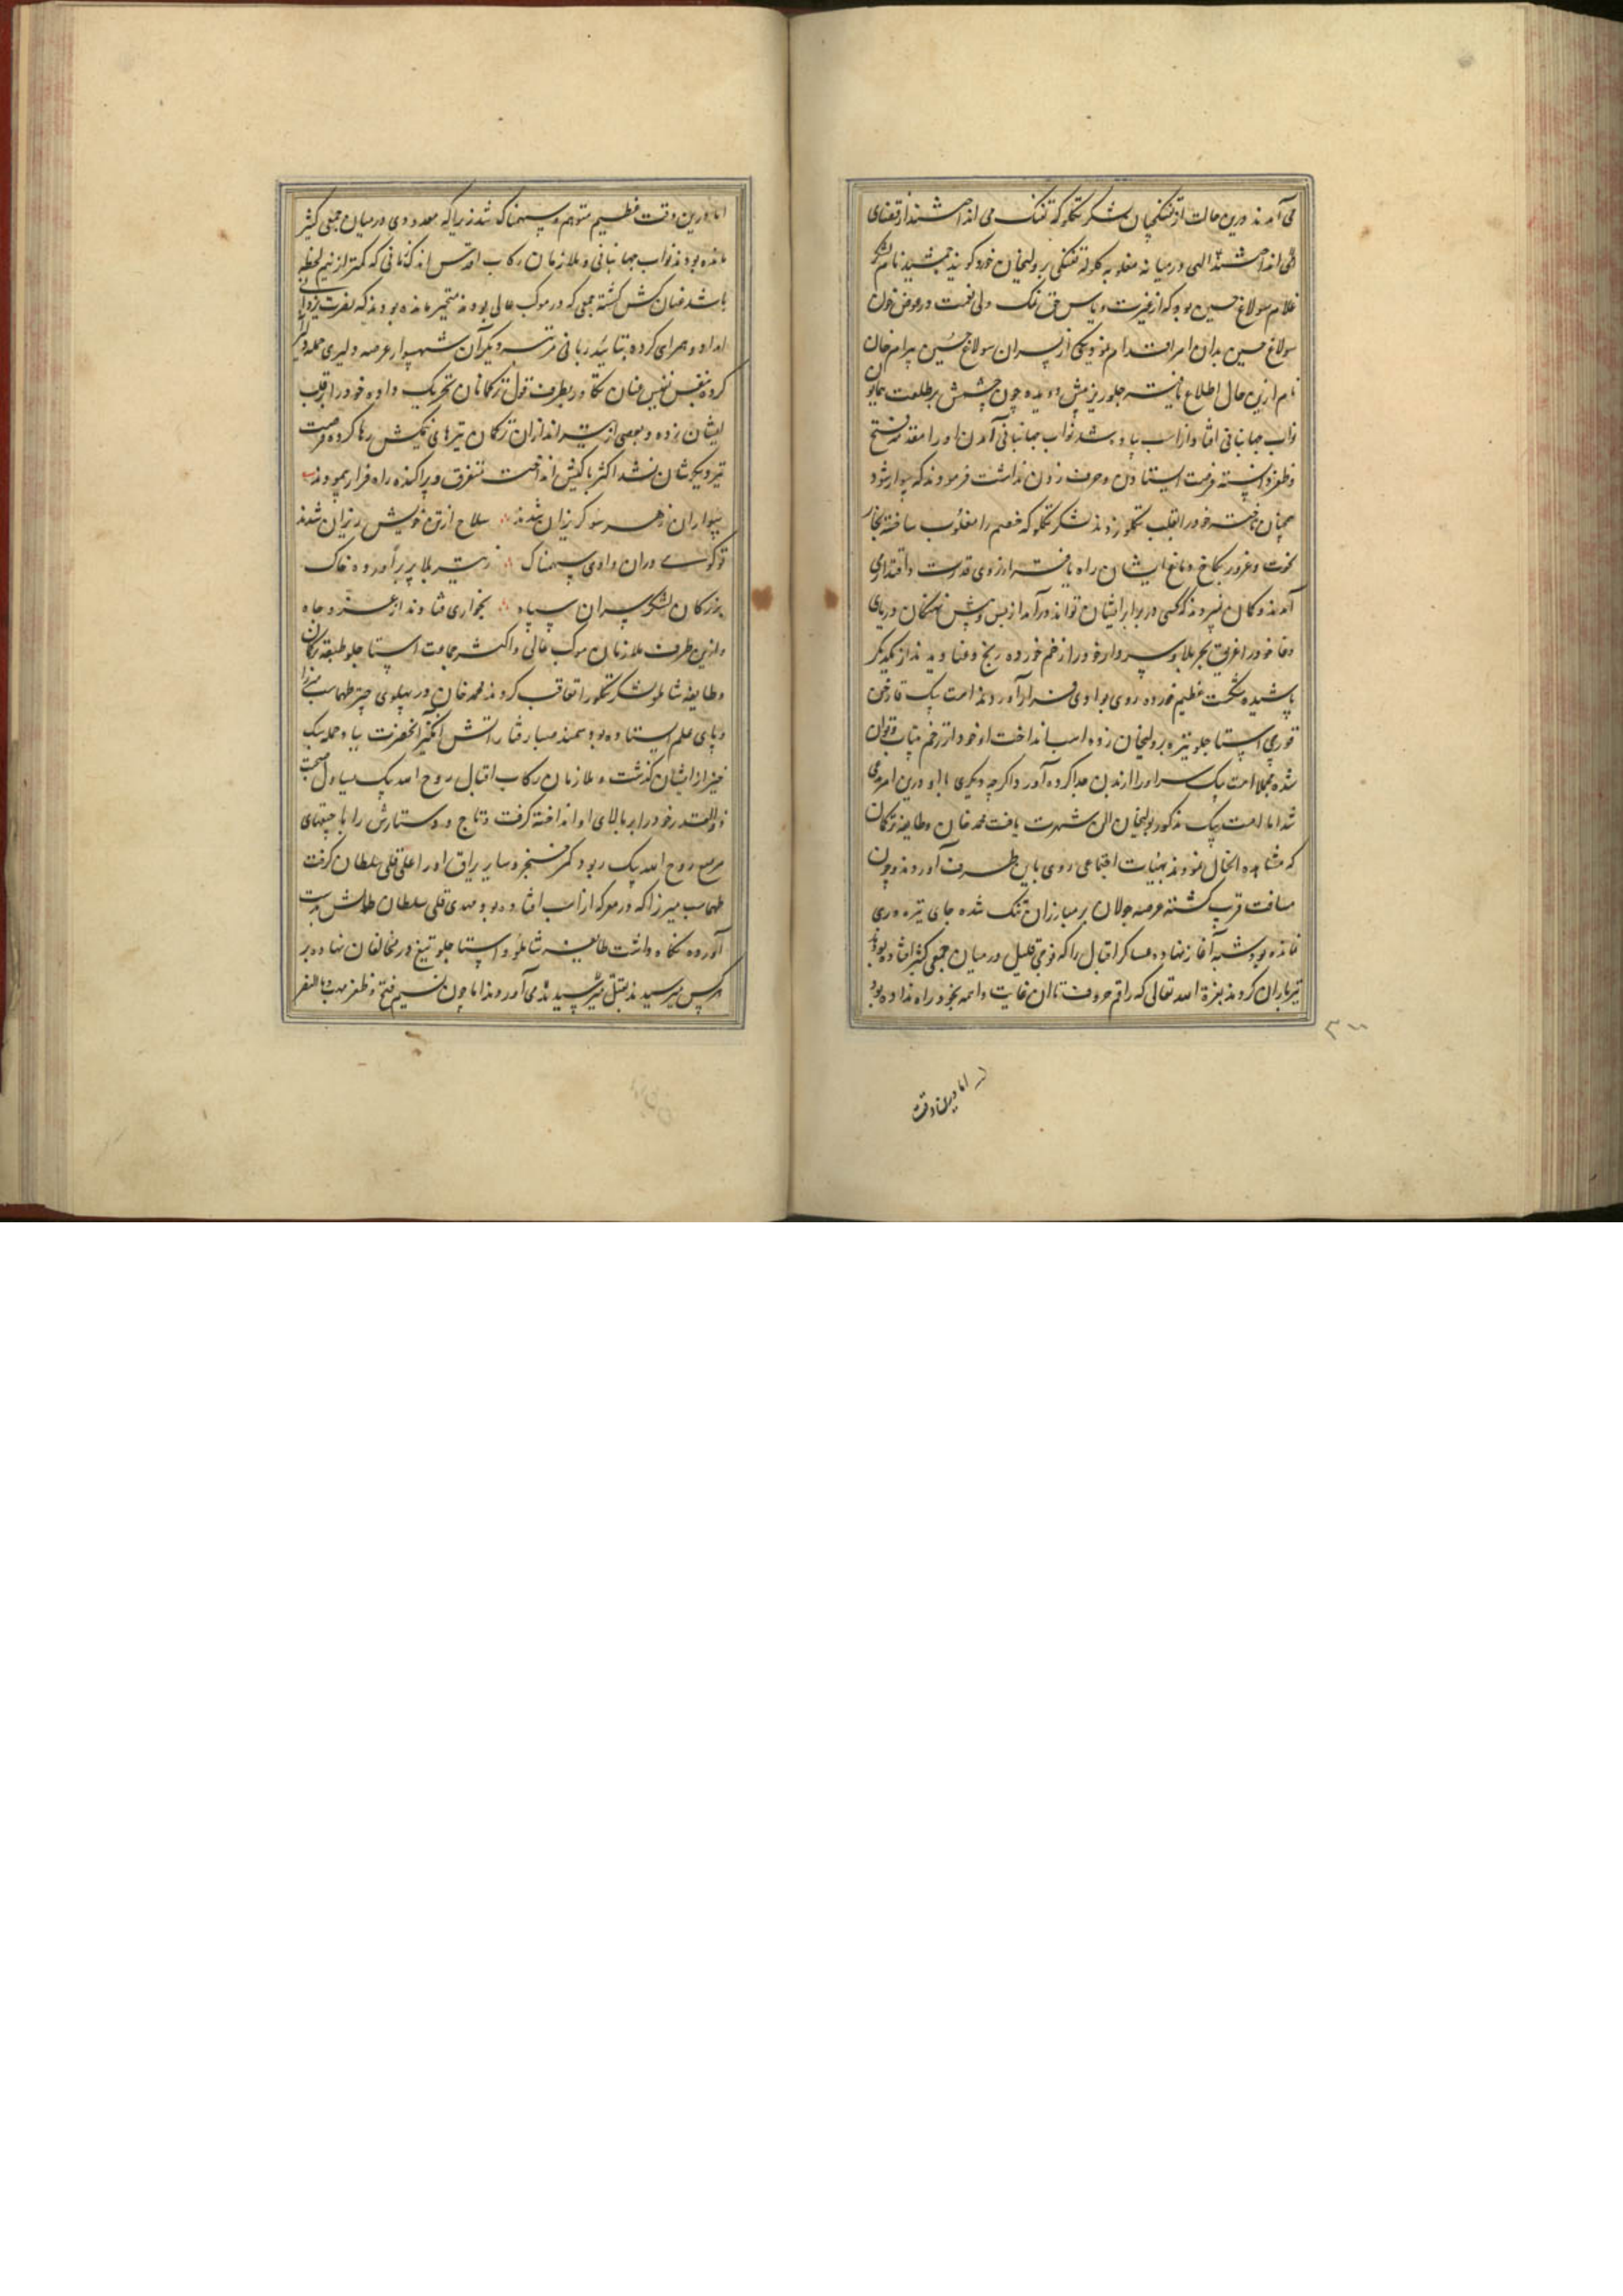 می آمدند درین حالت از تفنگچیان لشکر تکلو که تفنک می انداختند از قضای
الهی در میانه مغلوبه کلوله تفنکی بر ولیخان خورد کویند جمشید نام
غلام سولاغ حسین بود که از غیرت و پاس حق نمک ولی نعمت در عوض خون
سولاغ حسین بدان امر اقدام نمود و یکی از پسران سولاغ حسین بیرام خان
نام ازین حال اطلاع یافته جلوریز پیش دویده چون چشمش بر طلعت همایون
نواب جهانبانی افتاد از اسب پیاده شد نواب جهانبانی آمدن او را مقدمه فتح
و ظفر دانسته فرصت ایستادن و حرف زدن نداشت فرمودند که سوار شود
همچنان تاخته خود را بقلب تکلو زدند لشکر تکلو که خصم را مغلوب ساخته بخار
نخوت و غرور بکاخ دماغ ایشان راه یافته از روی قدرت و اقتدار می
آمدند و کمان نمیبردند که کسی در برابر ایشان تواند درآمد از پس و پیش نهنکان دریای
وغا خود را غریق بحر بلا و سردار خود را زخم خورده رنج و عنا دیدند از یکدیکر
پاشیده شکست عظیم خورده روی بوادی فرار آوردند امت بیک قارخین
قورچی استاجلو نیزه بر ولیخان زده از اسب انداخت او خود از زخم بیتاب و توان
شده مجملا امت بیک سر او را از بدن جدا کرده آورد اکرچه دیکری با او درین امر می
شد اما امت بیک مذکور بولیخان الی شهرت یافت محمد خان و طایفه ترکمان
که مشاهده الحال نمودند بهیئات اجتماعی روی باین طرف آوردند و چون
مسافت قریب کشته عرصه جولان بر مبارزان تنک شده جای نیزه وری
نمانده بود شیبه آغاز نهاده عساکر اقبال را که فوجی قلیل در میان جمعی کثیر افتاده بودند
تیرباران کردند بعزة الله تعالی که راقم حروف تا آن غایت واهمه بخود راه نداده بود
۳۰۰
اما درین وقت
اما درین وقت عظیم متوهم و سهمناک شد زیرا که معدودی در میان جمعی کثیر
مانده بودند نواب جهانبانی و ملازمان رکاب اقدس اندک زمانی که کمتر از نیم لحظه
باشد عنان کش کشته جمعی که در موکب عالی بودند متحیر مانده بودند که نصرت یزدانی
امداد و همراهی کرده بتائید ربانی مرتبه دیکر آن شهسوار عرصه دلیری حمله
کرده بنفس نفیس عنان تکاور بطرف قول ترکمانان تحریک داده خود را بر قلب
ایشان زده و بعضی از تیراندازان ترکمان تیرهای نیمکش رها کرده فرصت
تیر دیکرشان نشد اکثر با کیش انداخت متفرق و پراکنده راه فرار پیمودند
سواران ز هر سو کریزان شدند سلاح از تن خویش ریزان شدند
تو کوئی دران وادی سهمناک ز تیر بلا پر برآورده خاک
بزرکان لشکر سران سپاه بخواری فتادند از عز و جاه
و ازین طرف ملازمان موکب عالی و اکثر جماعت استاجلو طبقه ترکمان
و طایفه شاملو لشکر تکلو را تعاقب کردند محمد خان در پهلوی چتر طهماسب میرزا
و پای علم ایستاده بود سمند صبا رفتار آتش انکیز آنحضرت بباد حمله سبک
خیز از ایشان کذشت و ملازمان رکاب اقبال روح الله بیک یساول صحبت
ذوالقدر خود را بر بالای او انداخته کرفت و تاج و دستارش را با جیقهای
مرصع روح الله بیک ربود کمر خنجر و سایر یراق او را علی قلی سلطان کرفت
طهماسب میرزا که در معرکه از اسب افتاده بود مهدی قلی سلطان طالش بدست
آورده نکاه داشت طایفه شاملو و استاجلو تیغ در مخالفان نهاده بر
هر کس میرسیدند بقتل میرسانیدند می آوردند اما چون نسیم فتح و ظفر